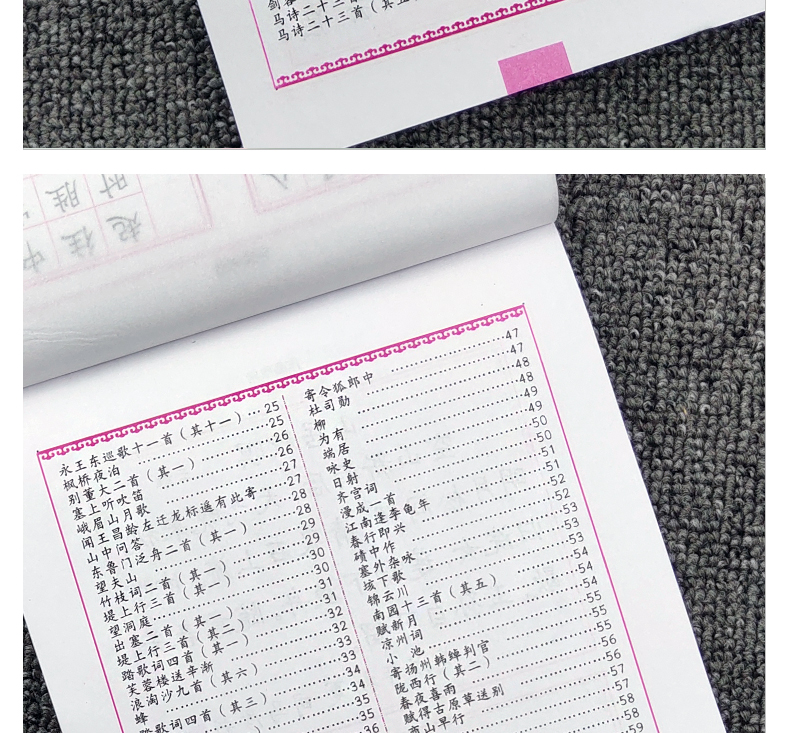 马诗二十三首
马诗二十三首（其五
时
胜
起
往
中
永王东巡歌十一首（其十一）…25
枫桥夜泊…25
别董大二首（其一）…26
塞上听吹笛…26
峨眉山月歌…27
闻王昌龄左迁龙标遥有此寄…27
山中问答…28
东鲁门泛舟二首（其一）…28
望夫山…29
竹枝词二首（其二）…29
堤上行三首（其一）…30
望洞庭…30
出塞二首（其一）…31
堤上行三首（其二）…31
踏歌词四首（其一）…32
芙蓉楼送辛渐…32
浪淘沙九首（其六）…33
蜂…33
踏歌词四首（其三）…34
34
35
36
寄令狐郎中…47
杜司勋…47
柳…48
为有…48
端居…49
咏史…49
日射…50
齐宫词…50
漫成一首…51
江南逢李龟年…51
春行即兴…52
碛中作…52
塞外杂咏…53
垓下歌…53
锦云川…54
南园十三首（其五）…54
赋新月…54
凉州词…55
小 池…55
寄扬州韩绰判官…56
陇西行（其二）…56
春夜喜雨…57
赋得古原草送别…57
商山早行…58
58
59